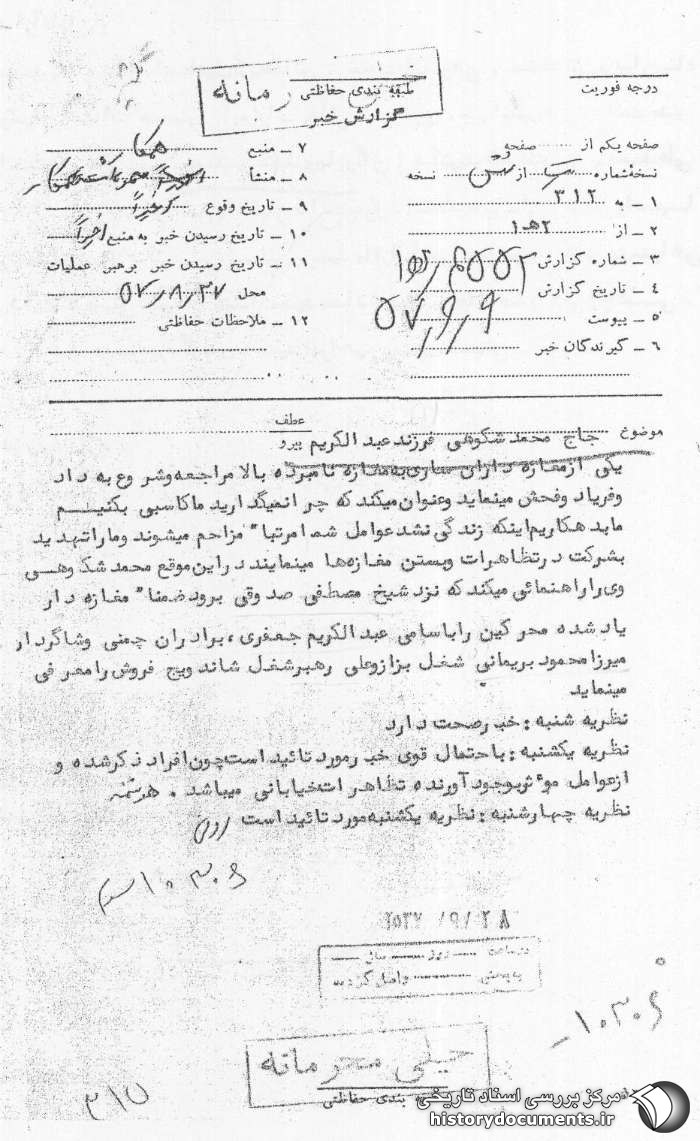 درجه فوریت
طبقه بندی حفاظتی
گزارش خبر
صفحه یکم از صفحه
نسخه شماره از نسخه
۱ ـ به ۳۱۲
۲ ـ از ۲ه۱
۳ ـ شماره گزارش
۴ ـ تاریخ گزارش ۵۷/۹/۹
۵ ـ پیوست
۶ ـ گیرندگان خبر
۷ ـ منبع همکار
۸ ـ منشأ
۹ ـ تاریخ وقوع اخیراً
۱۰ ـ تاریخ رسیدن خبر به منبع اخیراً
۱۱ ـ تاریخ رسیدن خبر برهبر عملیات
محل ۵۷/۸/۲۷
۱۲ ـ ملاحظات حفاظتی
موضوع حاج محمد شکوهی فرزند عبدالکریم
عطف
پیرو
یکی از مغازه داران ساری به مغازه نامبرده بالا مراجعه و شروع به داد
و فریاد و فحش مینماید و عنوان میکند که چرا نمیگذارید ما کاسبی بکنیم
ما بدهکاریم اینکه زندگی نشد عوامل شما مرتباً مزاحم میشوند و ما را تهدید
بشرکت در تظاهرات و بستن مغازه ها مینمایند در این موقع محمد شکوهی
وی را راهنمائی میکند که نزد شیخ مصطفی صدوقی برود ضمناً مغازه دار
یاد شده محرکین را باسامی عبدالکریم جعفری، برادران چمنی و شاگرد ار
میرزا محمود بریمانی شغل بزاز و علی رهبر شغل ساندویچ فروش را معرفی
مینماید
نظریه شنبه : خبر صحت دارد
نظریه یکشنبه : باحتمال قوی خبر مورد تائید است چون افراد ذکر شده و
از عوامل موثر بوجود آورنده تظاهرات خیابانی میباشد .
نظریه چهارشنبه : نظریه یکشنبه مورد تائید است
۲۵۳۷/۹/۲۸
در ساعت روز سال
به بخش واصل گردید
خیلی محرمانه
طبقه بندی حفاظتی
۳۱۵
مرکز بررسی اسناد تاریخی
historydocuments.ir